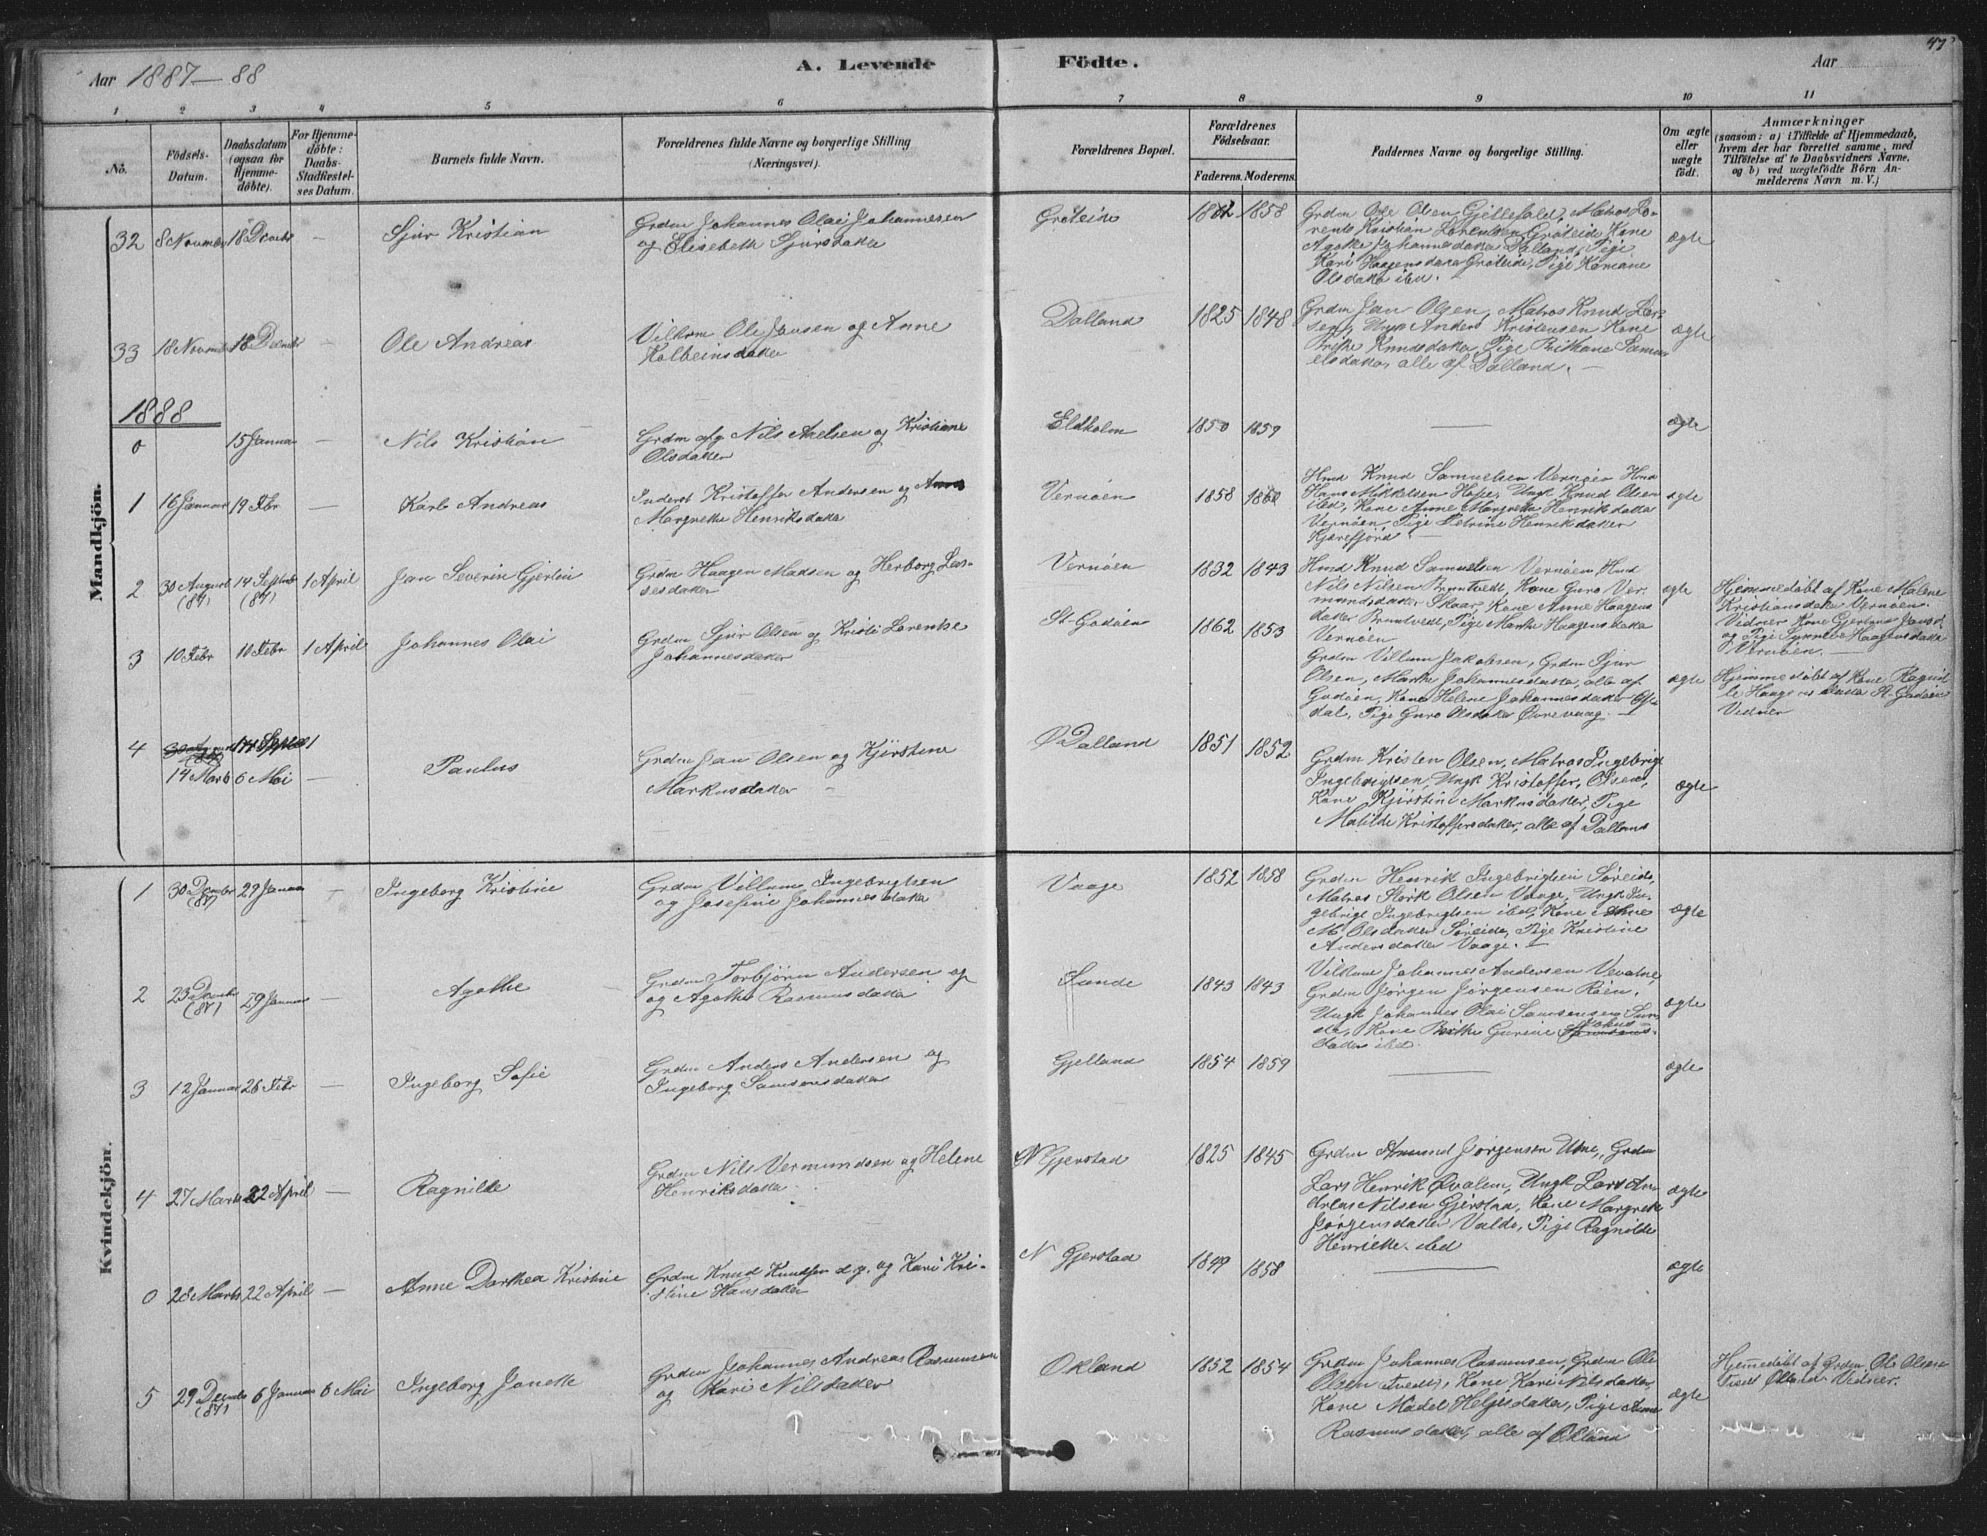 47
Aar 1887-88
A. Levende
Födte.
Aar
1 2 3 4 5 6 7 8 9 10 11
No.
Födsels-
Datum.
Daabsdatum
(ogsaa for
Hjemme-
döbte).
For Hjemme-
döbte:
Daabs-
Stadfæstel-
ses Datum.
Barnets fulde Navn.
Forældrenes fulde Navne og borgerlige Stilling
(Næringsvei).
Forældrenes Bopæl.
Forældrenes
Födselsaar.
Faderens. Moderens.
Faddernes Navne og borgerlige Stilling.
Om ægte
eller
uægte
födt.
Anmærkninger
(saasom: a) i Tilfælde af Hjemmedaab,
hvem der har forrettet samme, med
Tilföielse af to Daabsvidners Navne,
og b) ved uægtefödte Börn An-
melderens Navn m. V.)
Mandkjön.
32 8 Novmbr 18 Decmbr —
Sjur Kristian
Grdm Johannes Olai Johannesen
og Elisebeth Sjursdatter
Groteide
1862 1858
Grdm Ole Olsen Gjellefald, Matros Lo-
rents Kristian Lorentsen Groteide Kone
Agathe Johannesdatter Dalland, Pige
Kari Haagensdatter Groteide, Pige
Olsdatter ibd.
ægte
33 18 Novmbr 18 Decmbr —
Ole Andreas
Ole Jansen og Anne
Kolbeinsdatter
Dalland
1825 1848
Grdm Jan Olsen, Matros Knud Lar-
sen, Ungk Anders Kristensen Kone
Knudsdatter, Pige Samu-
elsdatter, alle af Dalland. —
ægte
1888
0 15 Januar —
Nils Kristian
Grdm afg Nils Axelsen og Kristiane
Olsdatter
Eldholm
1850 1859
—
ægte
1 16 Januar 19 Febr —
Karl Andreas
Inderst Kristoffer Andersen og
Margrethe Henriksdatter
Vernøen
1858 1860
Hmd Knud Samuelsen Vernøen Hmd
Hans Mikkelsen Ungk Knud Olsen
ibd, Kone Anne Margrethe Henriksdatter
Vernøen, Pige Petrine Henriksdatter
Kjærefjord —
ægte
2 30 August (87) 14 Septbr (87) 1 April
Jan Severin Gjertin
Grdm Haagen Madsen og Herborg Las-
sesdatter
Vernøen
1832 1843
Hmd Knud Samuelsen Vernøen Hmd
Nils Nilsen Bruntvedt, Kone Guro Ver-
mundsdatter Skaar, Kone Anne Haagens
datter Bruntvedt, Pige Marthe Haagensdatter
Vernøen
ægte
Hjemmedøbt af Kone Malene
Kristiansdatter Vernøen.
Vidner Kone Gjertrud Jansd.
og Pige Synneve Haagensdatter
Vernøen. —
3 10 Febr 10 Febr 1 April
Johannes Olai
Grdm Sjur Olsen og Kristi Lorentse
Johannesdatter
St-Godøen
1862 1853
Grdm Villum Jakobsen, Grdm Sjur
Olsen, Marthe Johannesdatter, alle af
Godøen, Kone Helene Johannesdatter
dal, Pige Guro Olsdatter Øvrevaag. —
ægte
Hjemmedøbt af Kone Ragnil-
de Haagensdatter St. Godøen
Vidner
4 30 August (87) 14 Septbr 1
14 Marts 6 Mai —
Paulus
Grdm Jan Olsen og Kjerstine
Markusdatter —
Ø Dalland
1851 1852
Grdm Kristen Olsen, Matros Ingebrigt
Ingebrigtsen, Ungk Kristoffer Olsen,
Kone Kjerstine Markusdatter, Pige
Matilde Kristoffersdatter, alle af Dalland
ægte
Kvindekjön.
1 30 Decmbr (87) 29 Januar —
Ingeborg Kristine
Grdm Villum Ingebrigtsen
og Josefine Johannesdatter
Vaage
1852 1858
Grdm Henrik Ingebrigtsen Søreide,
Matros Olsen Vaage, Ungk In-
gebrigt Ingebrigtsen ibd, Kone Anne
M. Olsdatter Søreide, Pige Kristine
Andersdatter Vaage. —
ægte
2 23 Decmbr (87) 29 Januar —
Agathe
Grdm Torbjørn Andersen og
og Agathe Rasmusdatter
Sunde
1843 1843
Johannes Andersen
Grdm Jørgen Jørgensen Røen.
Ungk Johannes Olai Samsonsen Sun-
de, Kone Gurine
datter ibd.
ægte
3 12 Januar 26 Febr —
Ingeborg Sofie
Grdm Anders Andersen og
Ingeborg Samsonsdatter
Gjelland
1854 1859
—
ægte
4 27 Marts 22 April —
Ragnilde
Grdm Nils Vermundsen og Helene
Henriksdatter
N Gjerstad
1825 1845
Grdm Amund Jørgensen Une, Grdm
Lars Henrik Øvalem, Ungk Lars An-
dreas Nilsen Gjerstad, Kone Margrethe
Jørgensdatter Valde, Pige Ragnilde
Henriette ibd
ægte
0 28 Marts 22 April —
Anne Dorthea Kristine
Grdm Knud Knudsen d.y. og Kari Kri-
stine Hansdatter
N Gjerstad
1849 1858
—
ægte
5 29 Decmbr (87) 6 Januar 6 Mai
Ingeborg Janette
Grdm Johannes Andreas Rasmussen
og Kari Nilsdatter
Økland
1852 1854
Grdm Johannes Rasmussen, Grdm Ole
Olsen Tvedt, Kone Kari Nilsdatter,
Kone Madel Helgesdatter, Pige Anne
Rasmusdatter, alle af Økland
ægte
Hjemmedøbt af Grdm Ole Olsen
Tvedt Økland. Vidner.